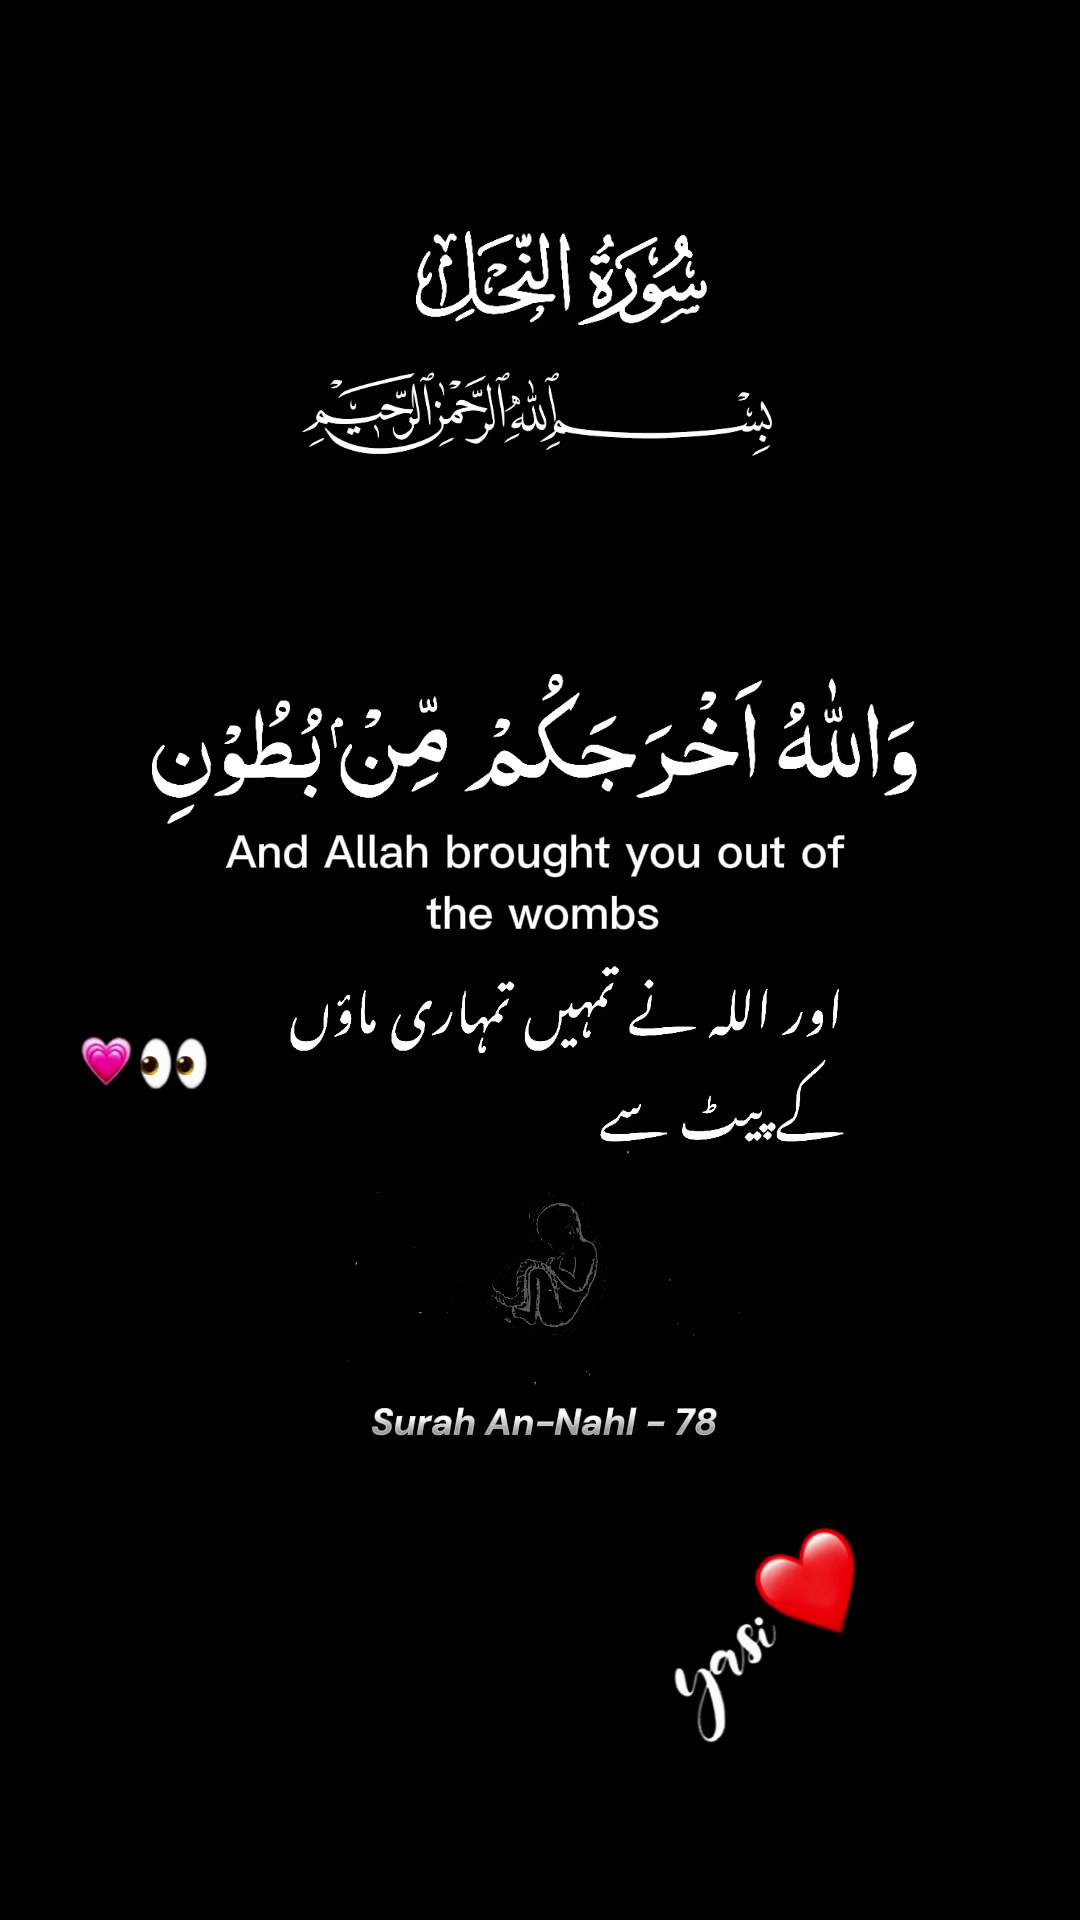 سُوْرَةُ النَّحْلِ
بِسْمِ ٱللَّهِ ٱلرَّحْمَٰنِ ٱلرَّحِيمِ
وَاللّٰهُ اَخْرَجَكُمْ مِّنْۢ بُطُوْنِ
And Allah brought you out of
the wombs
اور اللہ نے تمہیں تمہاری ماؤں
کے پیٹ سے
💗👀
Surah An-Nahl - 78
yasi❤️